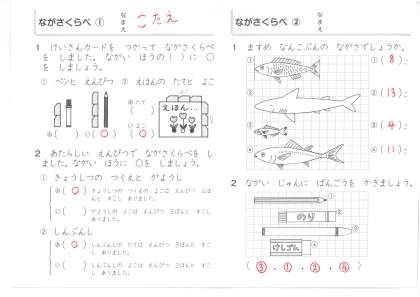 ながさくらべ ①
なまえ
こたえ
1 けいさんカードを つかって ながさくらべ
を しました。ながい ほうの( )に ○
を しましょう。
① ペンと えんぴつ
② えほんの たてと よこ
あ( )
い(○)
あ たて
( )
い よこ
(○)
えほん
2 あたらしい えんぴつで ながさくらべを し
ました。ながい ほうに ○を しましょう。
① きょうしつの つくえと がようし
あ(○)
きょうしつの つくえの よこは えんぴつ
んと すこし ありました。
い( )
がようしの よこは えんぴつ 3ぼんと すこ
し ありました。
② しんぶんし
あ(○)
しんぶんしの たては えんぴつ 3ぼんと すこ
し ありました。
い( )
しんぶんしの よこは えんぴつ 2ほんと すこ
し ありました。
ながさくらべ ②
なまえ
1 ますめ なんこぶんの ながさでしょうか。
①
① (8)こ
②
② (13)こ
③
③ (4)こ
④
④ (11)こ
2 ながい じゅんに ばんごうを かきましょう。
①
②
のり
③
けしごむ
④
(③, ①, ②, ④)